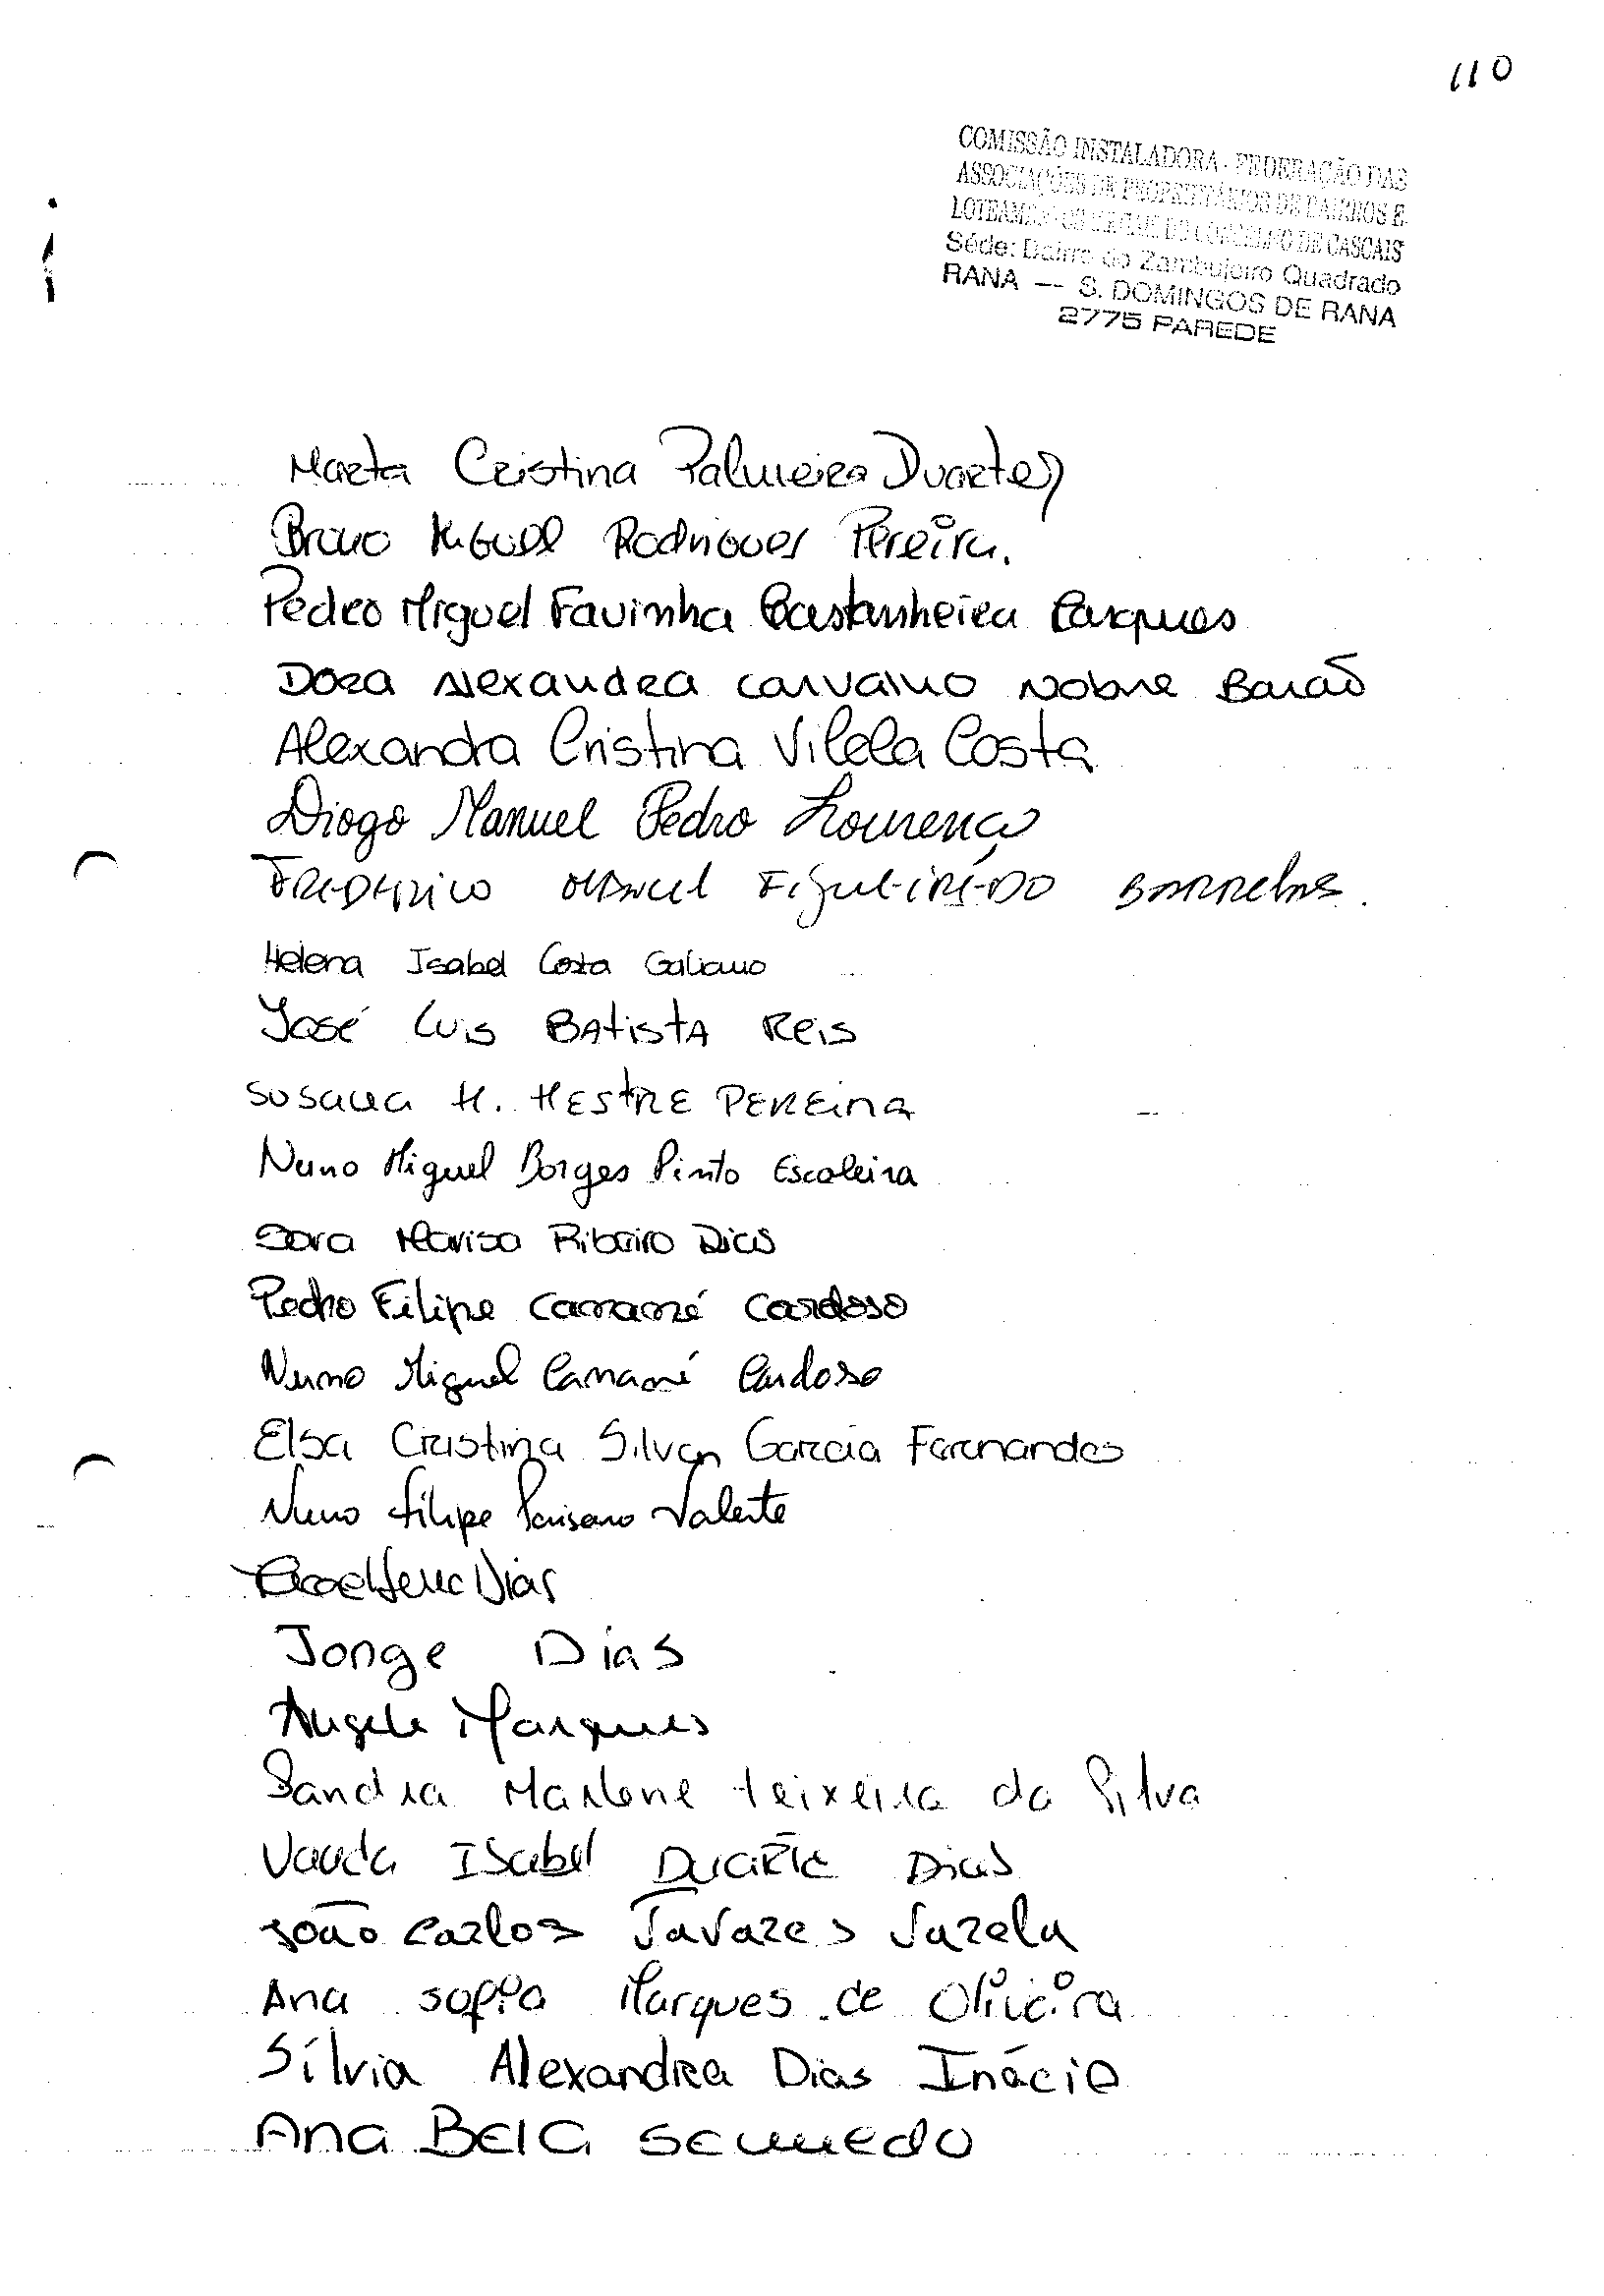 110
COMISSÃO INSTALADORA - FEDERAÇÃO DAS
ASSOCIAÇÕES DE PROPRIETÁRIOS DE BAIRROS E
LOTEAMENTOS DO CONCELHO DE CASCAIS
Séde: Bairro do Zambujeiro Quadrado
RANA -- S. DOMINGOS DE RANA
2775 PAREDE
Marta Cristina Palmeira Duarte
Bruno Miguel Rodrigues Pereira.
Pedro Miguel Favinha Castanheira Marques
Dora Alexandra Carvalho Nobre Barão
Alexandra Cristina Vilela Costa
Diogo Manuel Pedro Lourenço
Frederico Manuel Figueirêdo
Helena Isabel Costa Galiano
José Luis BAtistA Reis
Susana M. MEStRE PEREira
Nuno Miguel Borges Pinto Escaleira
Sara Marisa Ribeiro Dias
Pedro Filipe Camamé Cardoso
Nuno Miguel Camamé Cardoso
Elsa Cristina Silva Garcia Fernandes
Nuno Filipe Valente
Dias
Jorge Dias
Angela Marques
Sandra Marlene Teixeira da Silva
Vanda Isabel Duarte Dias
João Carlos Tavares Varela
Ana Sofia Marques de Oliveira
Sílvia Alexandra Dias Inácio
Ana BElA Semedo